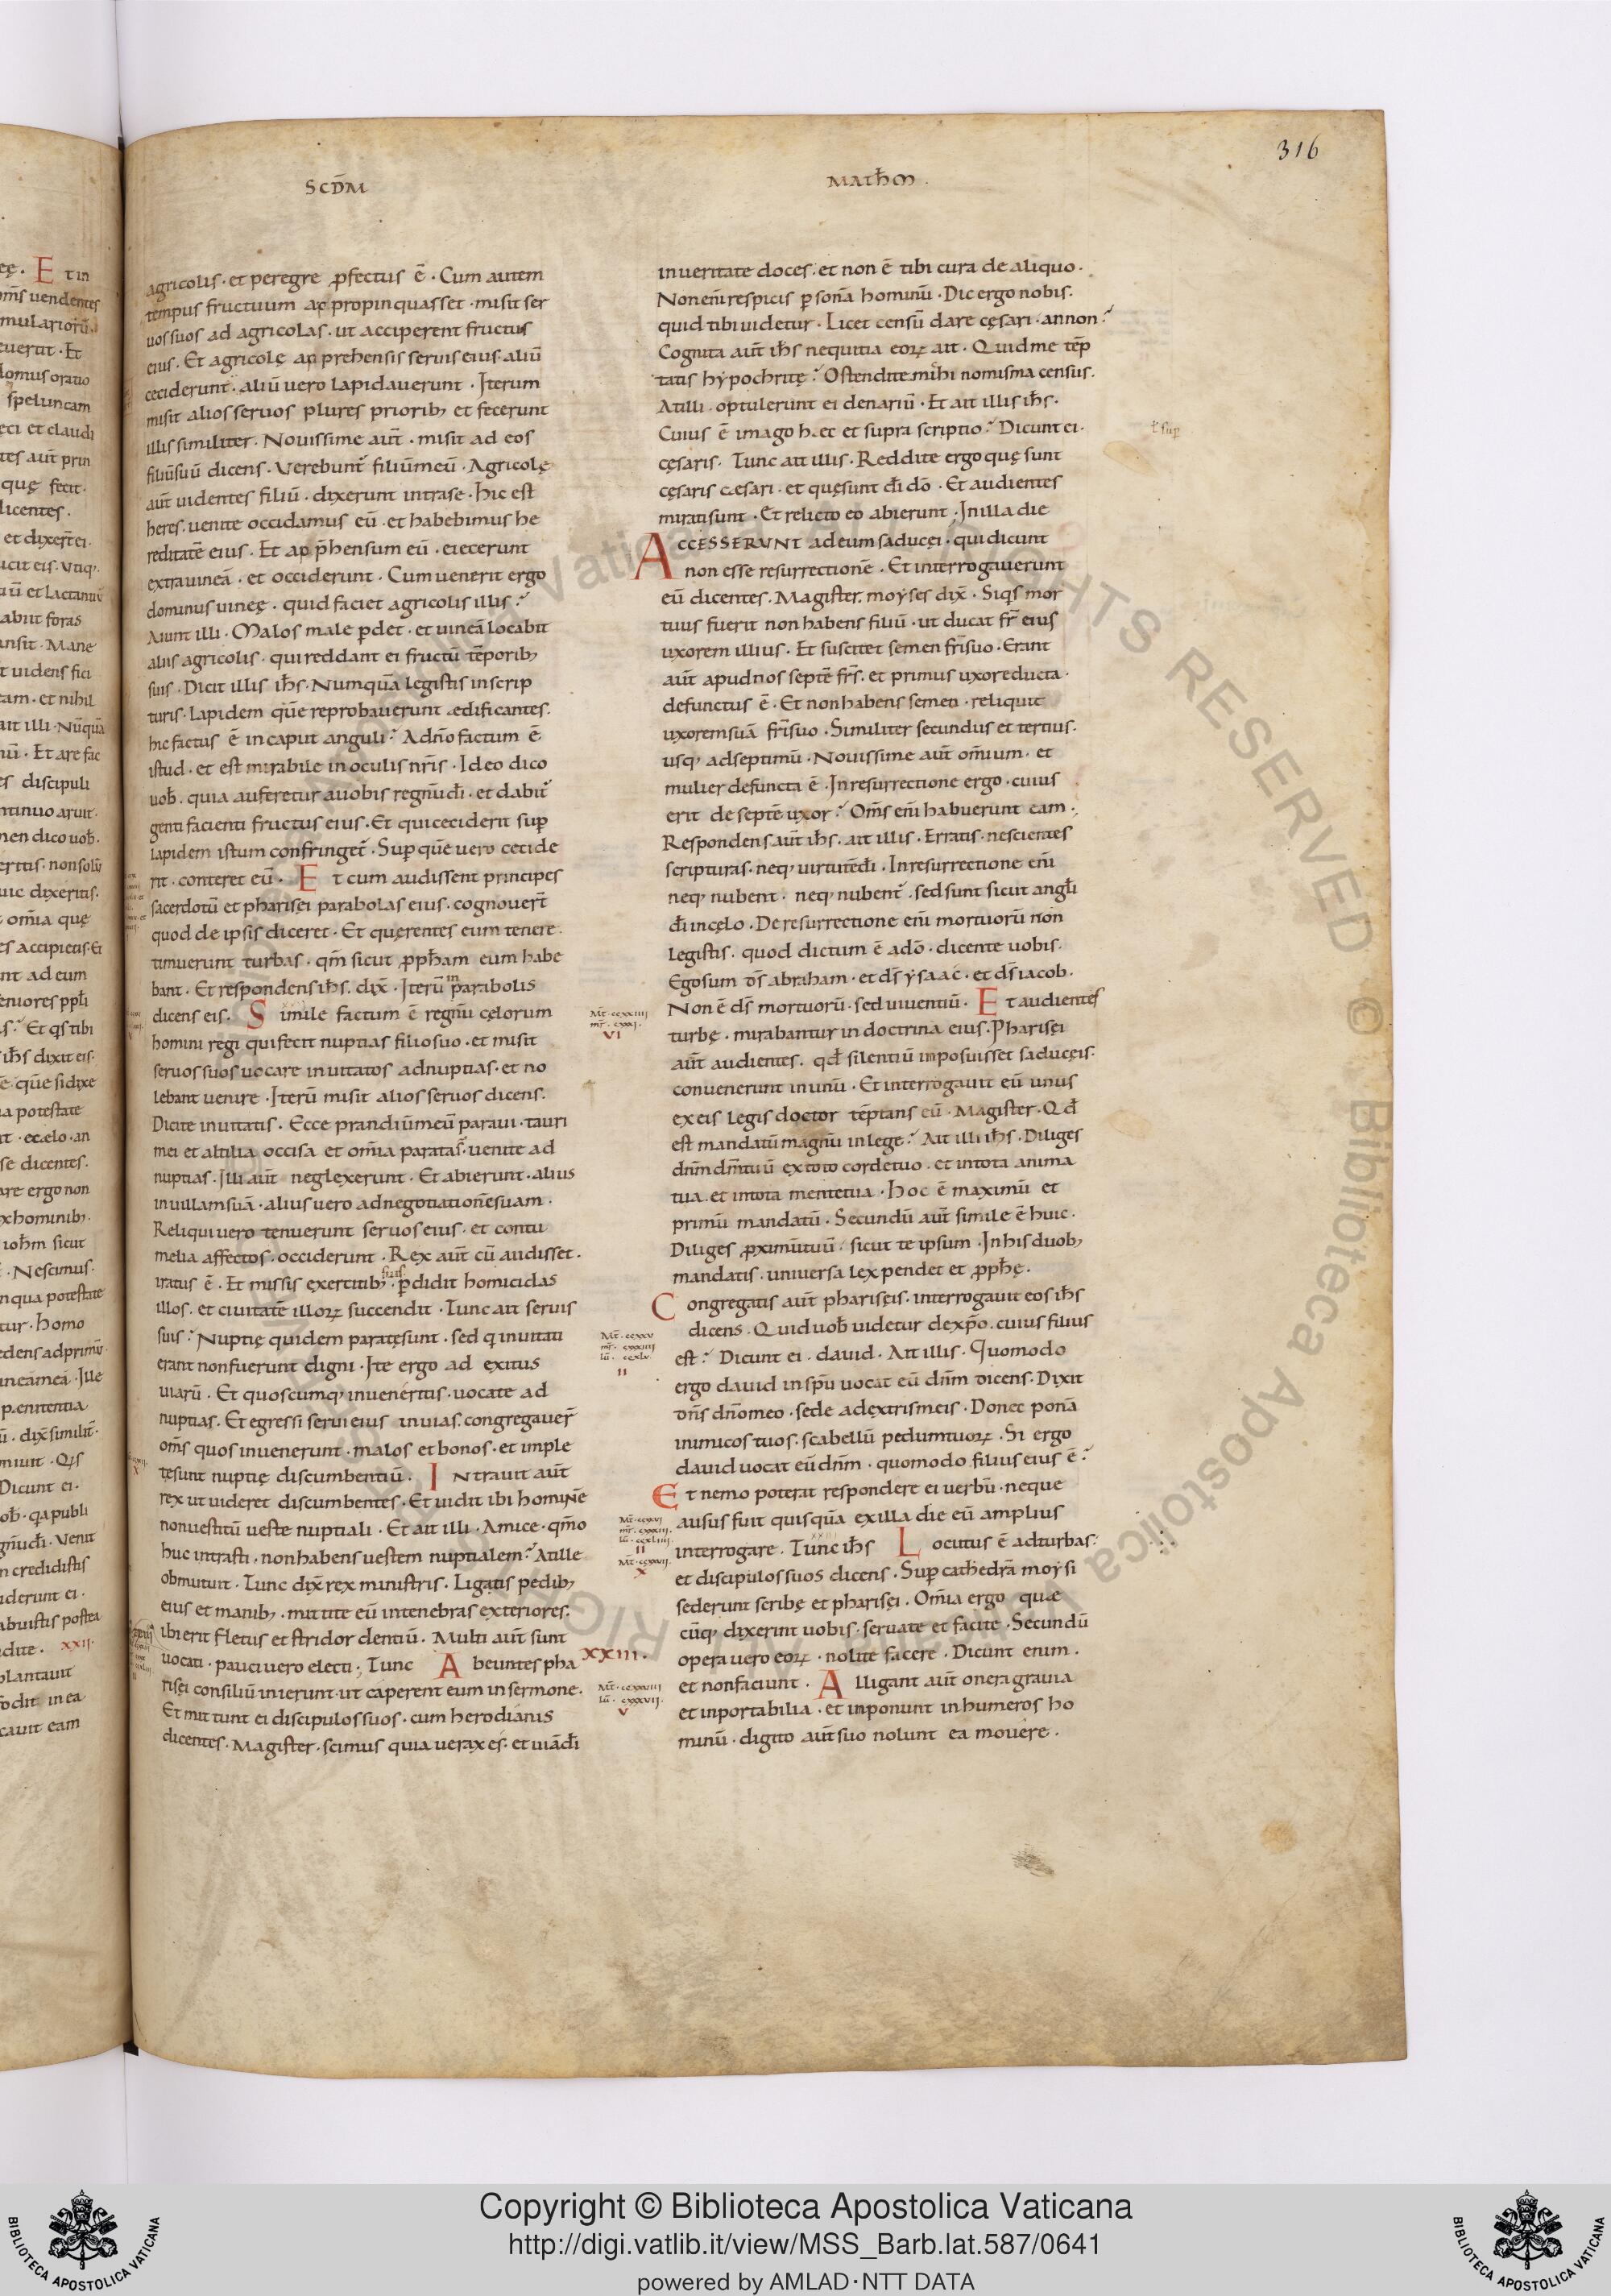 316
SCD̄M
MATH̄M .
agricolis · et peregre ꝓfectus ē · Cum autem
tempus fructuum appropinquasset · misit ser
uos suos ad agricolas · ut acciperent fructus
eius · Et agricolę apprehensis seruis eius · aliū
ceciderunt · aliū uero lapidauerunt · Iterum
misit alios seruos plures priorib; et fecerunt
illis similiter. Nouissime aūt · misit ad eos
filiū suū dicens · Verebunt᷑ filiū meū · Agricolę
aūt uidentes filiū · dixerunt intra se · hic est
heres · uenite occidamus eū · et habebimus he
reditatē eius · Et app̄hensum eū · eiecerunt
extra uineā · et occiderunt · Cum uenerit ergo
dominus uineę · quid faciet agricolis illis ?
Aiunt illi · Malos male ꝑdet · et uineā locabit
aliis agricolis · qui reddant ei fructū tēporib;
suis · Dicit illis ih̄s · Numquā legistis in scrip
turis · Lapidem quē reprobauerunt ædificantes ·
hic factus ē in caput anguli ? A dn̄o factum ē
istud · et est mirabile in oculis nr̄is · Ideo dico
uob̄ · quia auferetur a uobis regnū dī · et dabit᷑
genti facienti fructus eius · Et qui ceciderit suꝑ
lapidem istum confringet᷑ · Suꝑ quē uero cecide
rit · conteret eū · Et cum audissent principes
sacerdotū et pharisei parabolas eius · cognouer̄t
quod de ipsis diceret · Et quęrentes eum tenere
timuerunt turbas · qm̄ sicut ꝓph̄am eum habe
bant · Et respondens ih̄s · dix̄ · Iterū in parabolis
dicens eis · Simile factum ē regnū cęlorum
homini regi qui fecit nuptias filio suo · et misit
seruos suos uocare inuitatos ad nuptias · et no
lebant uenire · Iterū misit alios seruos dicens ·
Dicite inuitatis · Ecce prandiū meū paraui · tauri
mei et altilia occisa et om̄ia parata s̄ · uenite ad
nuptias · Illi aūt neglexerunt · Et abierunt · alius
in uillam suā · alius uero ad negotiationē suam ·
Reliqui uero tenuerunt seruos eius · et contu
melia affectos · occiderunt · Rex aūt cū audisset ·
iratus ē · Et missis exercitib; suis · ꝑdidit homicidas
illos · et ciuitatē illoꝝ succendit · Tunc ait seruis
suis : Nuptię quidem paratę sunt · sed q inuitati
erant non fuerunt digni · Ite ergo ad exitus
uiarū · Et quoscumq; inueneritis · uocate ad
nuptias · Et egressi serui eius in uias · congregauer̄
om̄s quos inuenerunt · malos et bonos · et imple
tę sunt nuptię discumbentiū · Intrauit aūt
rex ut uideret discumbentes · Et uidit ibi hominē
non uestitū ueste nuptiali · Et ait illi · Amice · qm̄o
huc intrasti · non habens uestem nuptialem ? At ille
obmutuit · Tunc dix̄ rex ministris · Ligatis pedib;
eius et manib; · mittite eū in tenebras exteriores ·
ibi erit fletus et stridor dentiū · Multi aūt sunt
uocati · pauci uero electi ; Tunc Abeuntes pha
risęi consiliū inierunt ut caperent eum in sermone ·
Et mittunt ei discipulos suos · cum herodianis
dicentes · Magister · scimus quia uerax es · et uiā dī
XXIII ·
in ueritate doces · et non ē tibi cura de aliquo ·
Non enī respicis ꝑsonā hominū · Dic ergo nobis ·
quid tibi uidetur · Licet censū dare cęsari · an non ?
Cognita aūt ih̄s nequitia eoꝝ ait · Quid me tēp
tatis hypochritę ? Ostendite mihi nomisma census ·
At illi · optulerunt ei denariū · Et ait illis ih̄s ·
Cuius ē imago hæc et supra scriptio ? Dicunt ei ·
cęsaris · Tunc ait illis · Reddite ergo quę sunt
cęsaris cæsari · et quę sunt dī dō · Et audientes
mirati sunt · Et relicto eo abierunt ; In illa die
ACCESSERUNT ad eum saducęi · qui dicunt
non esse resurrectionē · Et interrogauerunt
eū dicentes · Magister · moyses dix̄ · Siqs mor
tuus fuerit non habens filiū · ut ducat fr̄ eius
uxorem illius · Et suscitet semen fr̄i suo · Erant
aūt apud nos septē fr̄s · et primus uxore ducta ·
defunctus ē · Et non habens semen · reliquit
uxorem suā fr̄i suo · Similiter secundus et tertius ·
usq; ad septimū · Nouissime aūt om̄ium · et
mulier defuncta ē · In resurrectione ergo · cuius
erit de septē uxor ? Om̄s enī habuerunt eam ·
Respondens aūt ih̄s · ait illis · Erratis · nescientes
scripturas · neq; uirtutē dī · In resurrectione enī
neq; nubent · neq; nubent᷑ · sed sunt sicut angl̄i
dī in cęlo · De resurrectione enī mortuorū non
legistis · quod dictum ē a dō · dicente uobis ·
Ego sum ds̄ abraham · et ds̄ ysaac · et ds̄ iacob ·
Non ē ds̄ mortuorū · sed uiuentiū · Et audientes
turbę · mirabantur in doctrina eius · Pharisęi
aūt audientes · qd̄ silentiū imposuisset saducęis ·
conuenerunt in unū · Et interrogauit eū unus
ex eis legis doctor tēptans eū · Magister · Qd̄
est mandatū magnū in lege ? Ait illi ih̄s · Diliges
dn̄m dm̄ tuū ex toto corde tuo · et in tota anima
tua · et in tota mente tua · Hoc ē maximū et
primū mandatū · Secundū aūt simile ē huic ·
Diliges ꝓximū tuū · sicut te ipsum · In his duob;
mandatis · uniuersa lex pendet et ꝓph̄ę ·
Congregatis aūt pharisęis · interrogauit eos ih̄s
dicens · Quid uob̄ uidetur de xp̄o · cuius filius
est ? Dicunt ei · dauid · Ait illis · Quomodo
ergo dauid in sp̄u uocat eū dn̄m dicens · Dixit
dn̄s dn̄o meo · sede a dextris meis · Donec ponā
inimicos tuos · scabellū pedum tuoꝝ · Si ergo
dauid uocat eū dn̄m · quomodo filius eius ē ?
Et nemo poterat respondere ei uerbū · neque
ausus fuit quisquā ex illa die eū amplius
interrogare · Tunc ih̄s Locutus ē ad turbas ·
et discipulos suos dicens · Suꝑ cathedrā moysi
sederunt scribę et pharisęi · Om̄ia ergo quæ
cūq; dixerint uobis · seruate et facite · Secundū
opera uero eoꝝ · nolite facere · Dicunt enim ·
et non faciunt · Alligant aūt onera grauia
et inportabilia · et inponunt in humeros ho
minū · digito aūt suo nolunt ea mouere ·
Copyright © Biblioteca Apostolica Vaticana
http://digi.vatlib.it/view/MSS_Barb.lat.587/0641
powered by AMLAD·NTT DATA
BIBLIOTECA APOSTOLICA VATICANA
BIBLIOTECA APOSTOLICA VATICANA